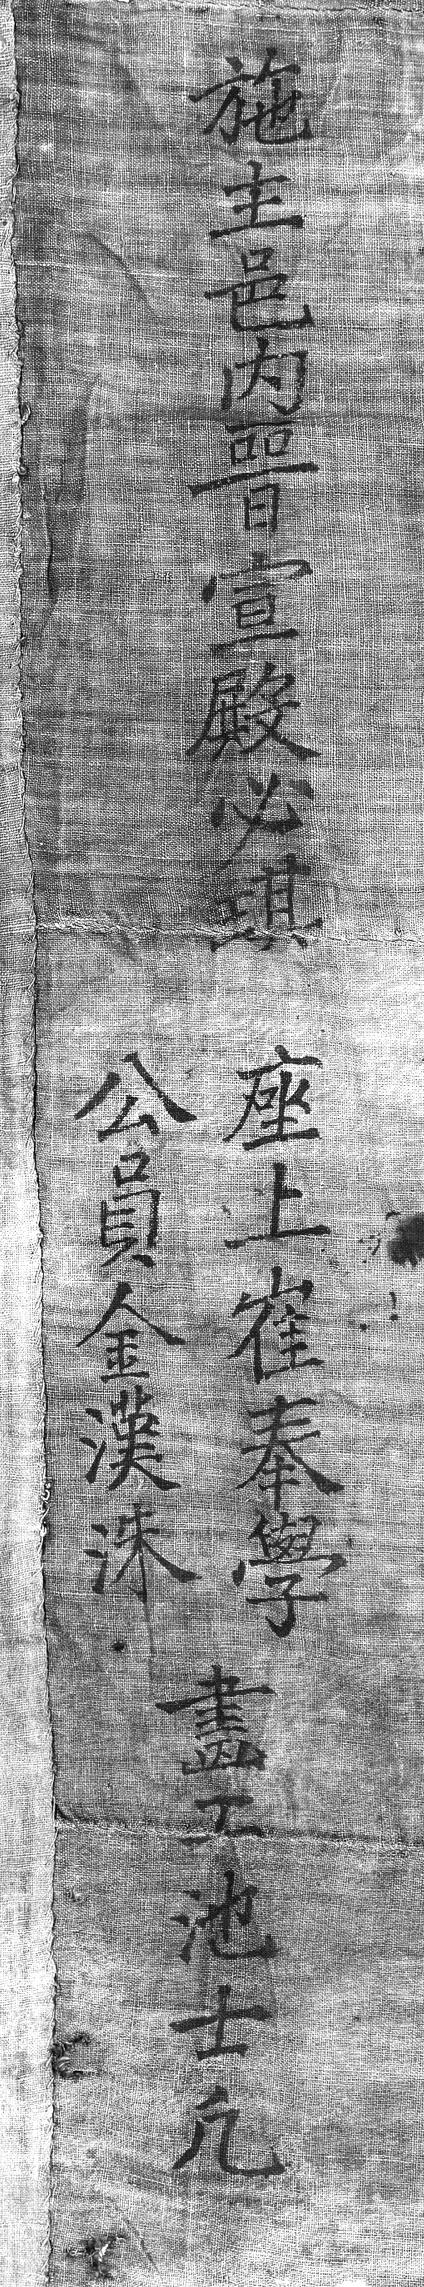 施主邑内晋宣殿必琪
座上崔奉學
公員金漢洙
畫工池士凡